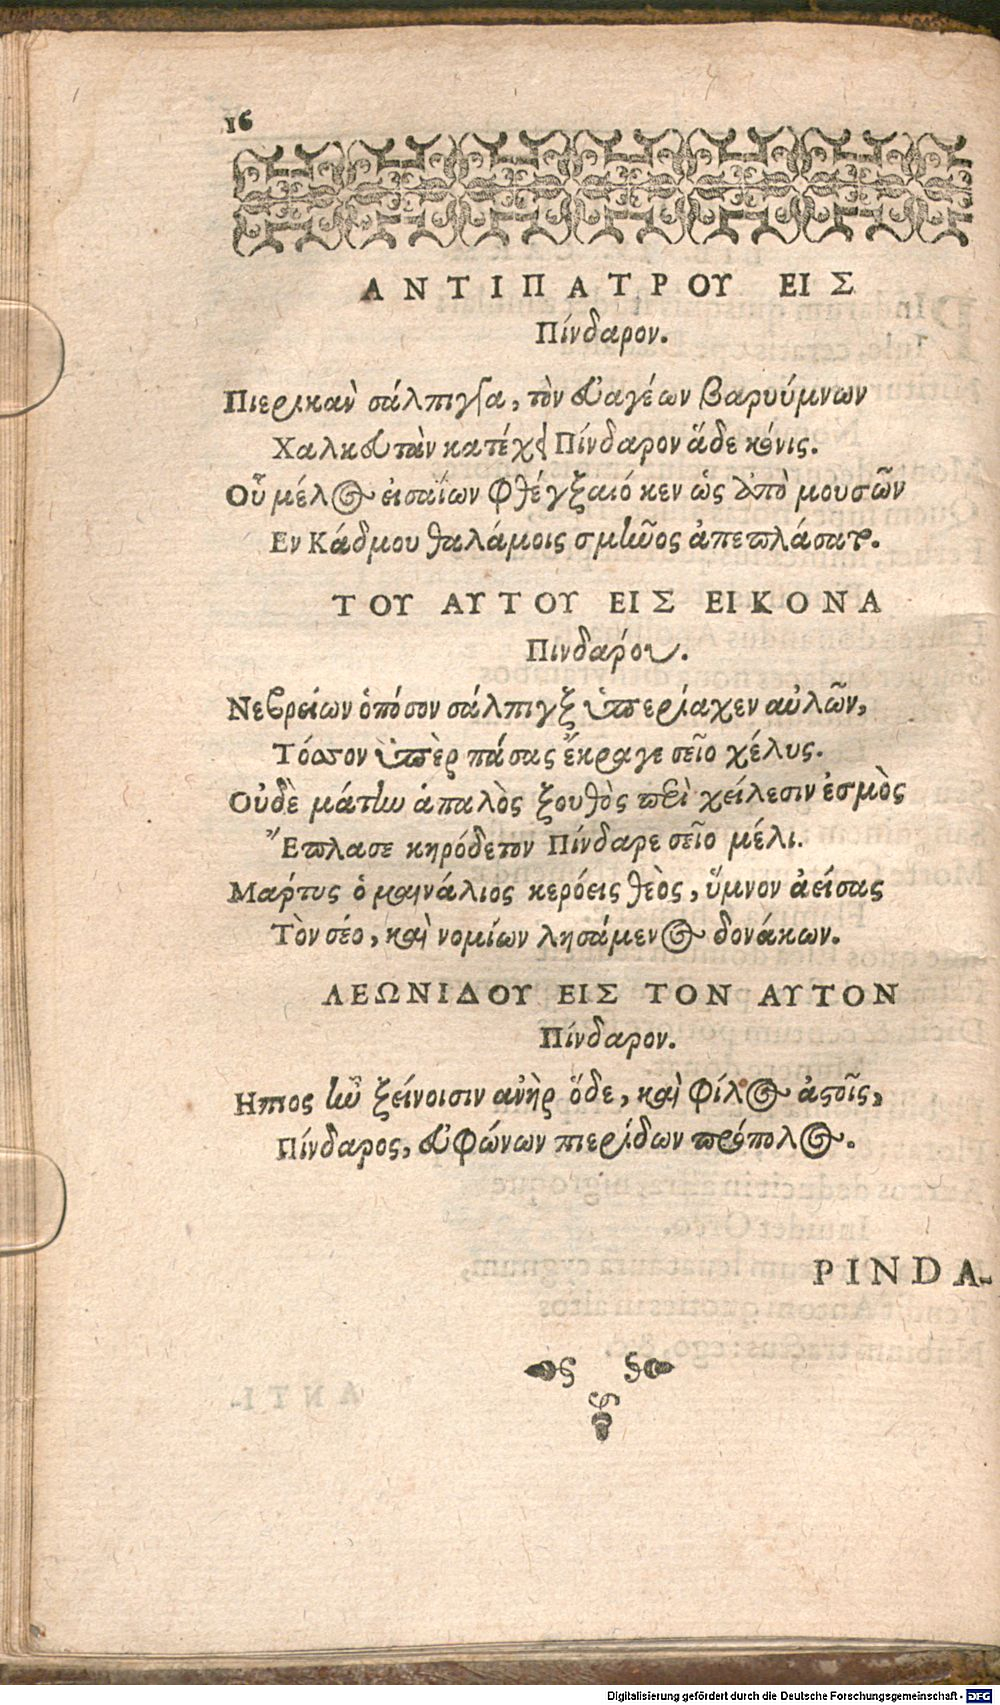 16
ΑΝΤΙΠΑΤΡΟΥ ΕΙΣ
Πίνδαρον.
Πιερικαὺ σάλπιγγα, τὸν εὐαγέων βαρυύμνων
Χαλκευτὰν κατέχει Πίνδαρον ἅδε κόνις.
Οὗ μέλος εἰσαΐων φθέγξαιό κεν ὡς ἀπὸ μουσῶν
Εν Κάδμου θαλάμοις σμῆνος ἀπεπλάσατο.
ΤΟΥ ΑΥΤΟΥ ΕΙΣ ΕΙΚΟΝΑ
Πινδάρου.
Νεβρείων ὁπόσον σάλπιγξ ὑπερίαχεν αὐλῶν,
Τόσσον ὑπὲρ πάσας ἔκραγε σεῖο χέλυς.
Οὐδὲ μάτην ἁπαλὸς ξουθὸς περὶ χείλεσιν ἐσμὸς
Ἔπλασε κηρόδετον Πίνδαρε σεῖο μέλι.
Μάρτυς ὁ μαινάλιος κερόεις θεὸς, ὕμνον ἀείσας
Τὸν σέο, καὶ νομίων λησάμενος δονάκων.
ΛΕΩΝΙΔΟΥ ΕΙΣ ΤΟΝ ΑΥΤΟΝ
Πίνδαρον.
Ηπιος ἦν ξείνοισιν ἀνὴρ ὅδε, καὶ φίλος ἀστοῖς,
Πίνδαρος, εὐφώνων πιερίδων πρόπολος.
PINDA-
Digitalisierung gefördert durch die Deutsche Forschungsgemeinschaft - DFG